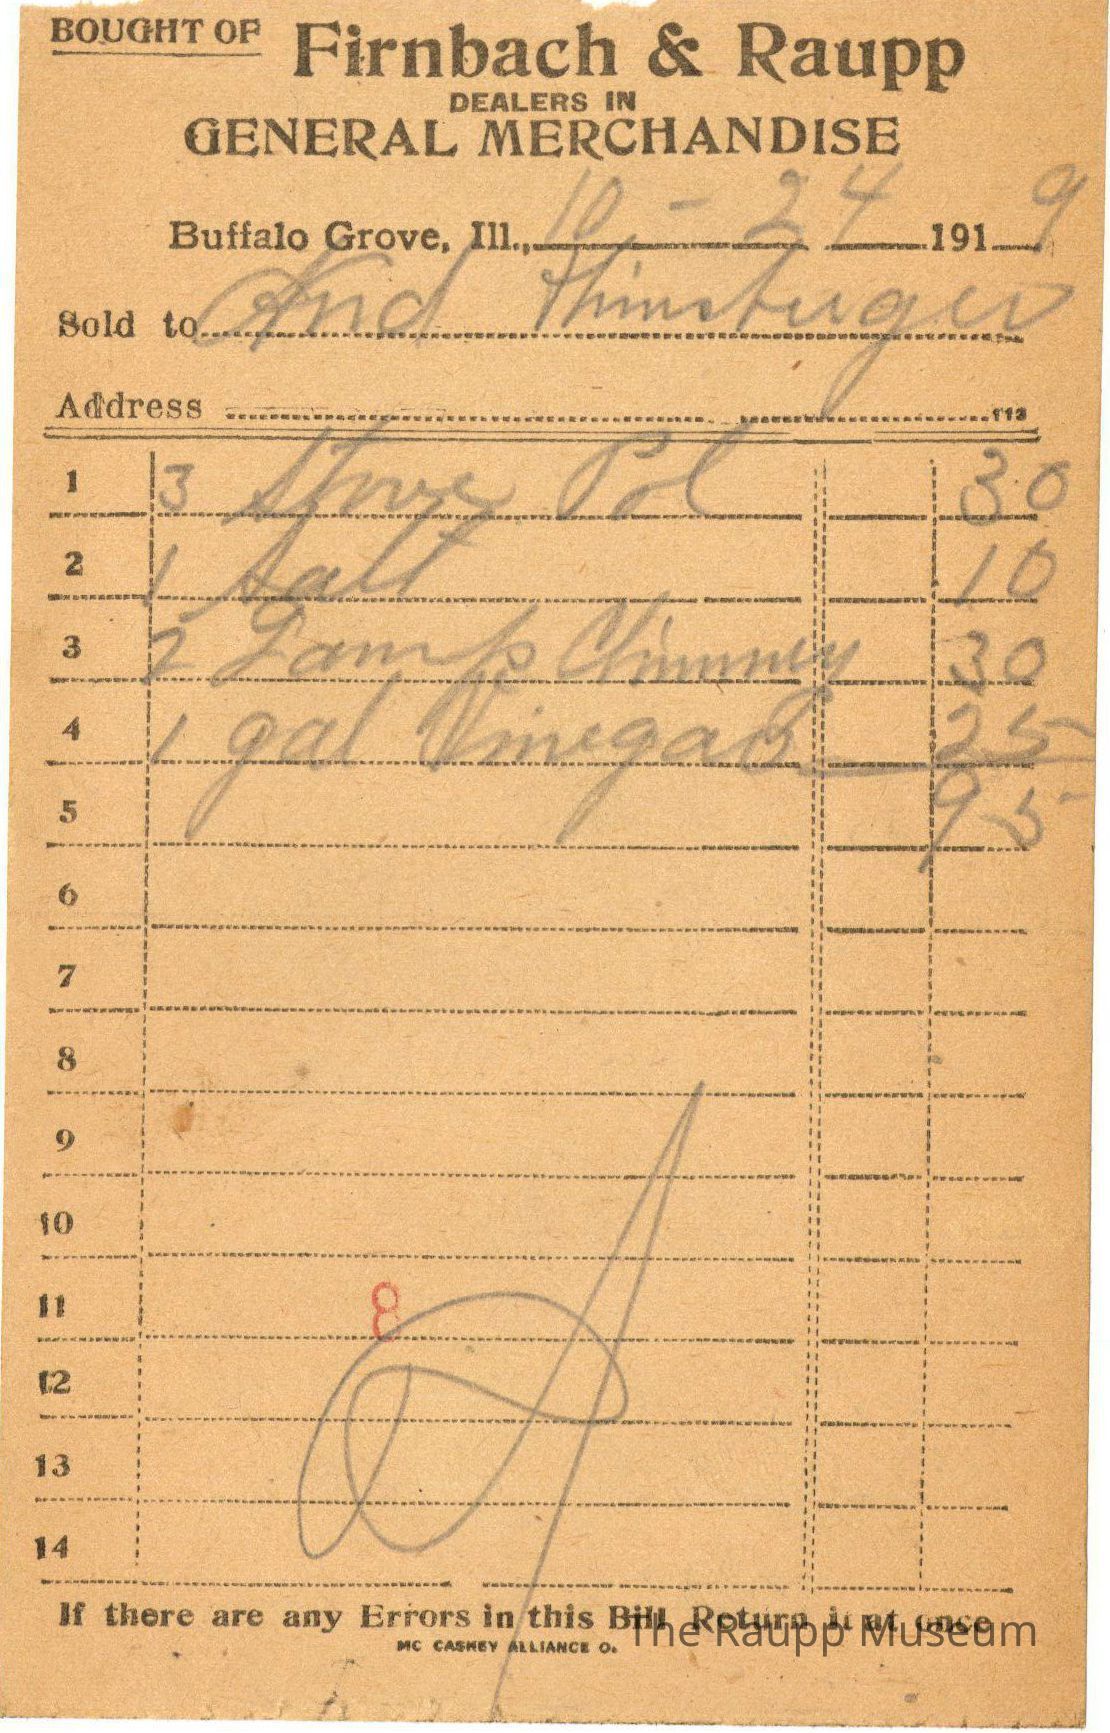 BOUGHT OF Firnbach & Raupp
DEALERS IN
GENERAL MERCHANDISE
Buffalo Grove, Ill., 10 - 24 1919
Sold to And
Address 113
1 3 Stove Pol 30
2 1 Salt 10
3 2 Lamp Chimney 30
4 1 gal Vinegar 25
5 95
6
7
8
9
10
11 8
12
13
14
If there are any Errors in this Bill Return it at once
MC CASKEY ALLIANCE O.
The Raupp Museum